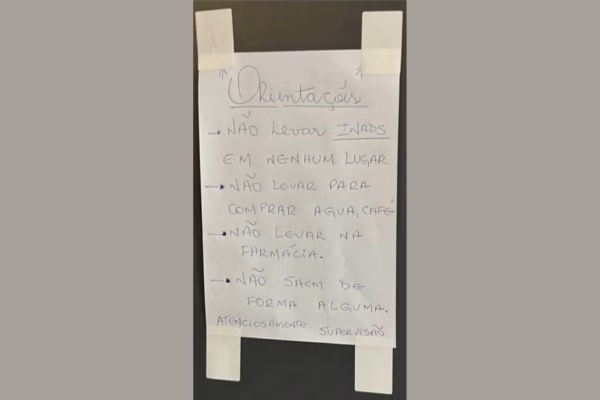 Orientaçõs
→ NÃO Levar INADS
EM NENHUM LUGAR.
→ NÃO LEVAR PARA
COMPRAR AGUA, CAFÉ
→ NÃO LEVAR NA
FARMÁCIA.
→ NÃO SAEM DE
FORMA ALGUMA.
ATENCIOSAMENTE SUPERVISÃO